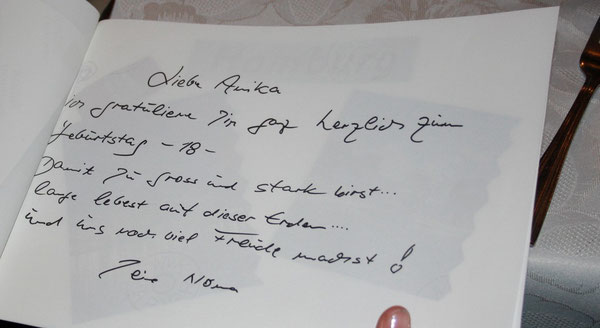 Liebe Anika
ich gratuliere Dir ganz herzlich zum
Geburtstag - 18 -
Damit Du gross und stark wirst...
lange lebest auf dieser Erden....
und uns noch viel Freude machst !
Deine Nonna